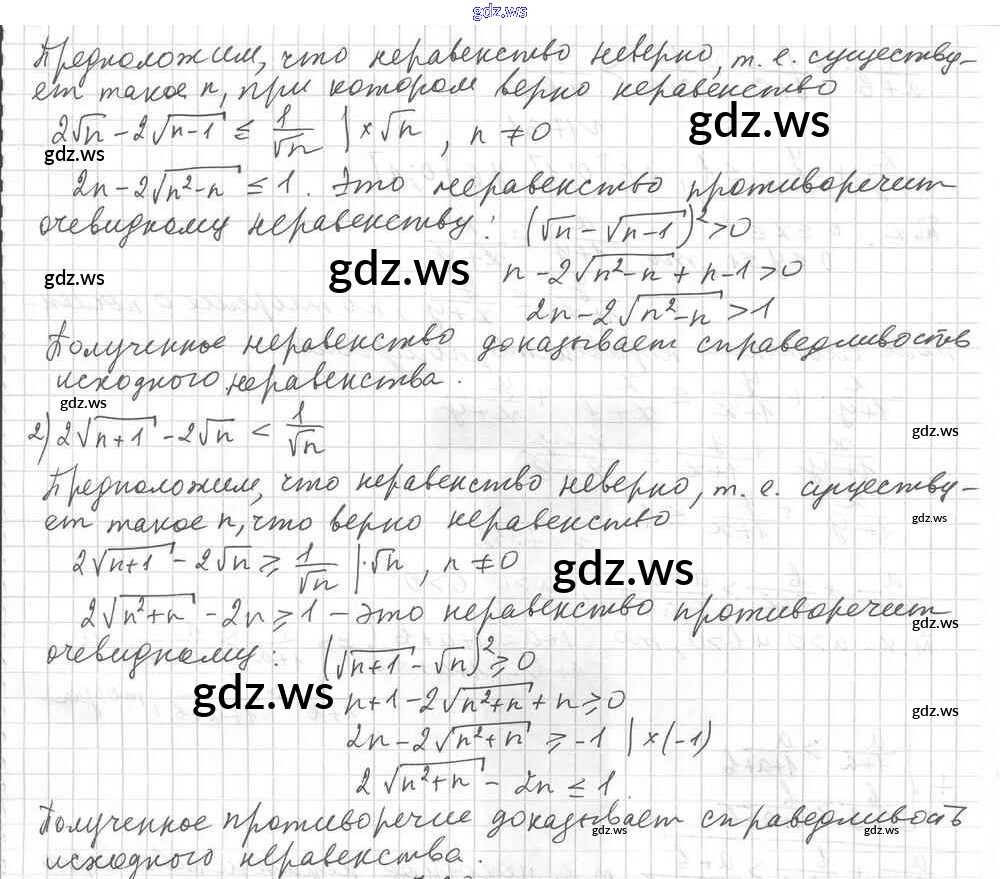 gdz.ws
Предположим, что неравенство неверно, т. е. существу-
ет такое n, при котором верно неравенство
2√n - 2√(n-1) ≤ 1/√n | × √n , n ≠ 0
gdz.ws
gdz.ws
2n - 2√(n²-n) ≤ 1. Это неравенство противоречит
очевидному неравенству: (√n - √(n-1))² > 0
gdz.ws
gdz.ws
n - 2√(n²-n) + n - 1 > 0
2n - 2√(n²-n) > 1
Полученное неравенство доказывает справедливость
исходного неравенства.
gdz.ws
2) 2√(n+1) - 2√n < 1/√n
gdz.ws
Предположим, что неравенство неверно, т. е. существу-
ет такое n, что верно неравенство
gdz.ws
2√(n+1) - 2√n ≥ 1/√n | · √n , n ≠ 0
gdz.ws
2√(n²+n) - 2n ≥ 1 - это неравенство противоречит
gdz.ws
очевидному: (√(n+1) - √n)² ≥ 0
gdz.ws
n+1 - 2√(n²+n) + n ≥ 0
gdz.ws
2n - 2√(n²+n) ≥ -1 | × (-1)
2√(n²+n) - 2n ≤ 1.
Полученное противоречие доказывает справедливость
gdz.ws
gdz.ws
исходного неравенства.